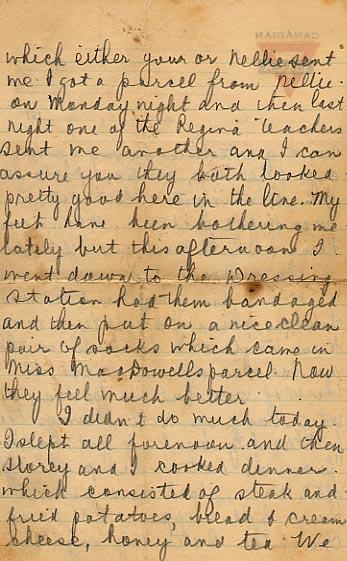 CANADIAN
which either your or Nellie sent
me. I got a parcel from Nellie
on Monday night and then last
night one of the Regina teachers
sent me another and I can
assure you they both looked
pretty good here in the line. My
feet have been bothering me
lately but this afternoon I
went down to the Dressing
Station had them bandaged
and then put on a nice clean
pair of socks which came in
Miss MacDowells parcel. Now
they feel much better.
I didn't do much today.
I slept all forenoon and then
Storey and I cooked dinner.
which consisted of steak and
fried potatoes, bread & cream
cheese, honey and tea. We